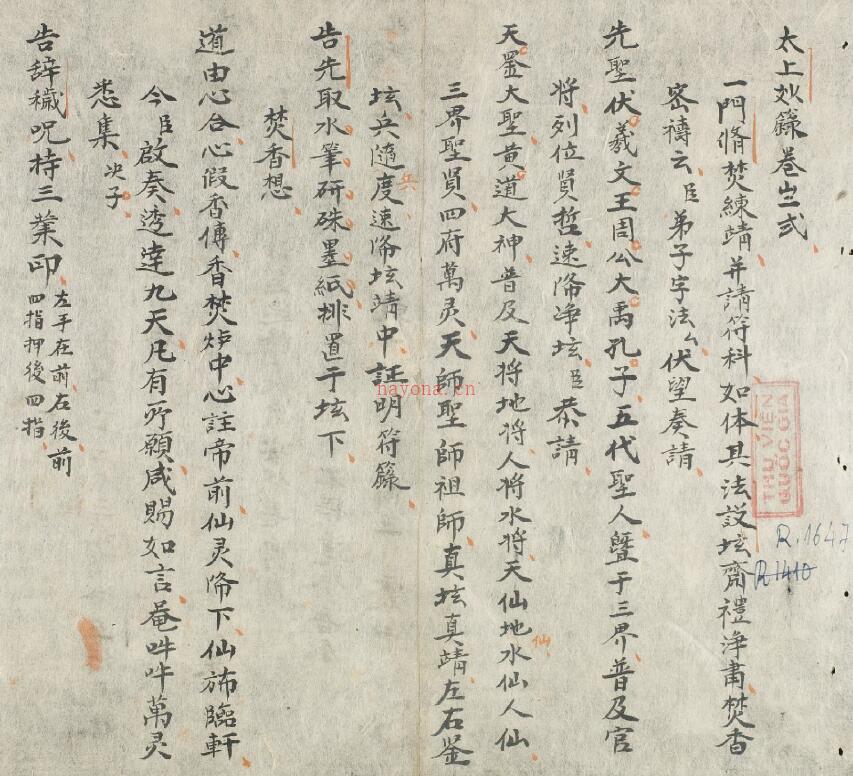 太上妙籙卷之弍
一門脩焚練靖并請符科如体具法設坛齋禮浄肅焚香
密禱云臣弟子字法厶伏望奏請
先聖伏羲文王周公大禹孔子五代聖人曁于三界普及官
将列位賢哲速降净坛臣恭請
天罡大聖黄道大神普及天将地将人将水将天仙地水仙人仙
仙
三界聖賢四府萬灵天師聖師祖師真坛真靖左右鉴
坛兵隨度速降坛靖中証明符籙
兵
告先取水筆研硃墨紙排置于坛下
焚香想
道由心合心假香傳香焚炉中心註帝前仙灵降下仙斾臨軒
今臣啟奏透達九天凡有所願咸賜如言菴吽吽萬灵
悉集决子
告辞穢呪持三業印左手在前右後前
四指押後四指
THƯ VIỆN
QUỐC GIA
R.1647
R1410
nayona.cn